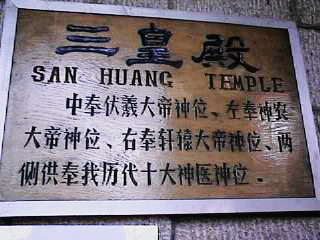 三皇殿
SAN HUANG TEMPLE
中奉伏羲大帝神位、左奉神农
大帝神位、右奉轩辕大帝神位、两
侧供奉我历代十大神医神位.